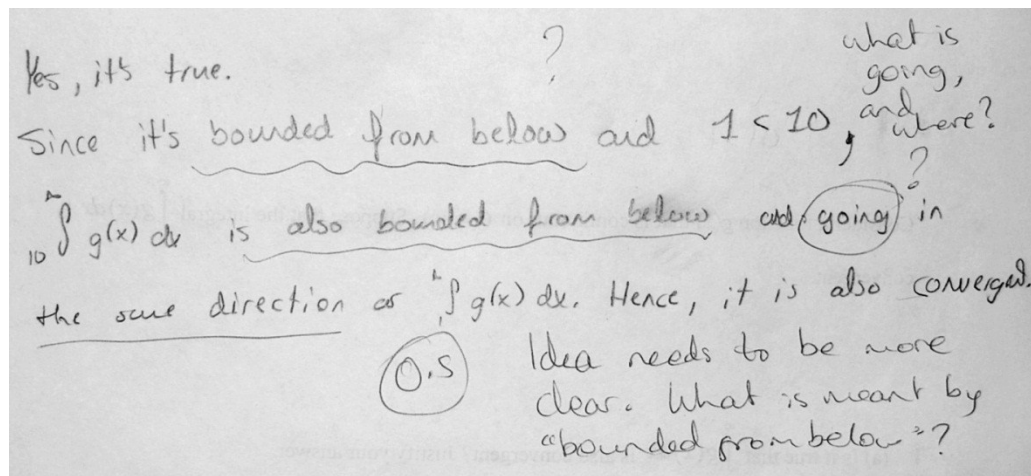 ?
what is
going,
and where?
Yes, it's true.
Since it's bounded from below and 1 < 10,
?
10∫ g(x) dx is also bounded from below and going in
the same direction as 1∫ g(x) dx. Hence, it is also converged.
0.5
Idea needs to be more
clear. What is meant by
"bounded from below"?